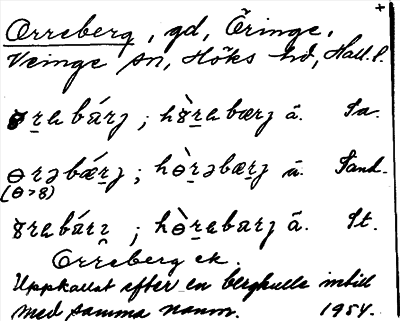 +
Orreberg, gd, Öringe,
Veinge sn, Höks hd, Hall. l.
ɞrabárʒ; hɞ̀rabærʒ ā. Sa.
ɵrəbǽrʒ; hɵ̀rəbærʒ ā. Sand.
(ɵ>ɞ)
ɞrabárɪ; hɵ̀rabarʒ ā. St.
Orreberg ek.
Uppkallat efter en bergkulle intill
med samma namn. 1954.